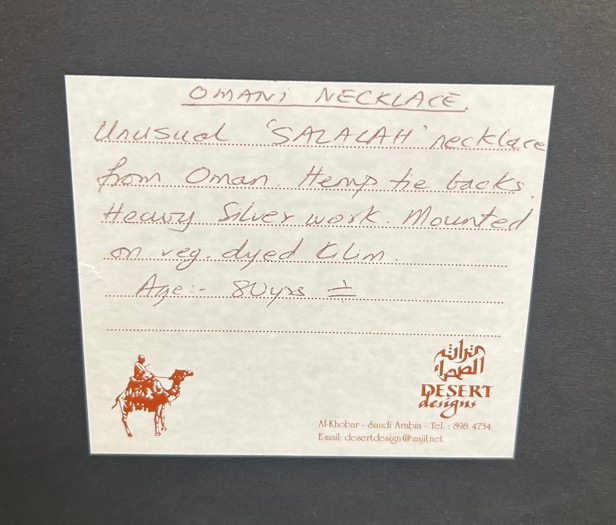 OMANI NECKLACE.
Unusual 'SALALAH' necklace
from Oman. Hemp tie backs.
Heavy Silver work. Mounted
on veg. dyed Kilim.
Age:- 80yrs ±
تراث
الصحراء
DESERT
designs
Al-Khobar - Saudi Arabia - Tel. : 898 4734
E-mail: desertdesign@zajil.net